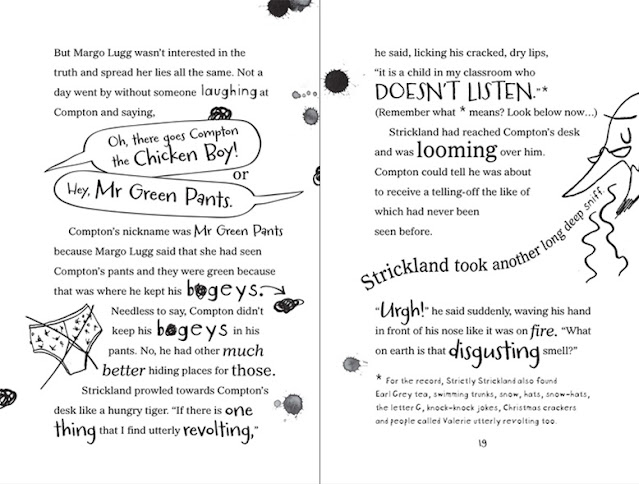 But Margo Lugg wasn't interested in the
truth and spread her lies all the same. Not a
day went by without someone laughing at
Compton and saying,
Oh, there goes Compton
the Chicken Boy!
or
Hey, Mr Green Pants.
Compton's nickname was Mr Green Pants
because Margo Lugg said that she had seen
Compton's pants and they were green because
that was where he kept his bogeys.
Needless to say, Compton didn't
keep his bogeys in his
pants. No, he had other much
better hiding places for those.
Strickland prowled towards Compton's
desk like a hungry tiger. "If there is one
thing that I find utterly revolting,"
he said, licking his cracked, dry lips,
"it is a child in my classroom who
DOESN'T LISTEN."*
(Remember what * means? Look below now…)
Strickland had reached Compton's desk
and was looming over him.
Compton could tell he was about
to receive a telling-off the like of
which had never been
seen before.
Strickland took another long deep sniff.
"Urgh!" he said suddenly, waving his hand
in front of his nose like it was on fire. "What
on earth is that disgusting smell?"
* For the record, Strictly Strickland also found
Earl Grey tea, swimming trunks, snow, hats, snow-hats,
the letter G, knock-knock jokes, Christmas crackers
and people called Valerie utterly revolting too.
19